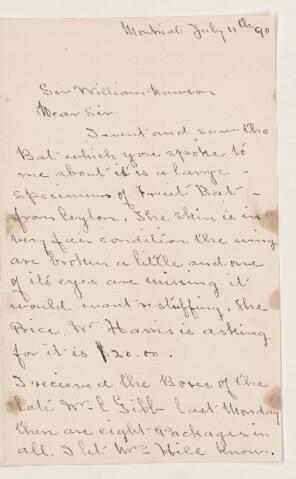 Montreal July 11th 90
Sir William Dawson
Dear Sir
I went and saw the
Bat which you spoke to
me about it is a large
specimens of Fruit Bat -
from Ceylon. The skin is in
very fair condition the wing
are broken a little and one
of it's eyes are missing it
would want restuffing. The
Price Mr Harris is asking
for it is $20.00.
I recieved the Boxes of the
late Mr C Gibb last Monday
there are eight Packages in
all. I let Mrs Hill know.